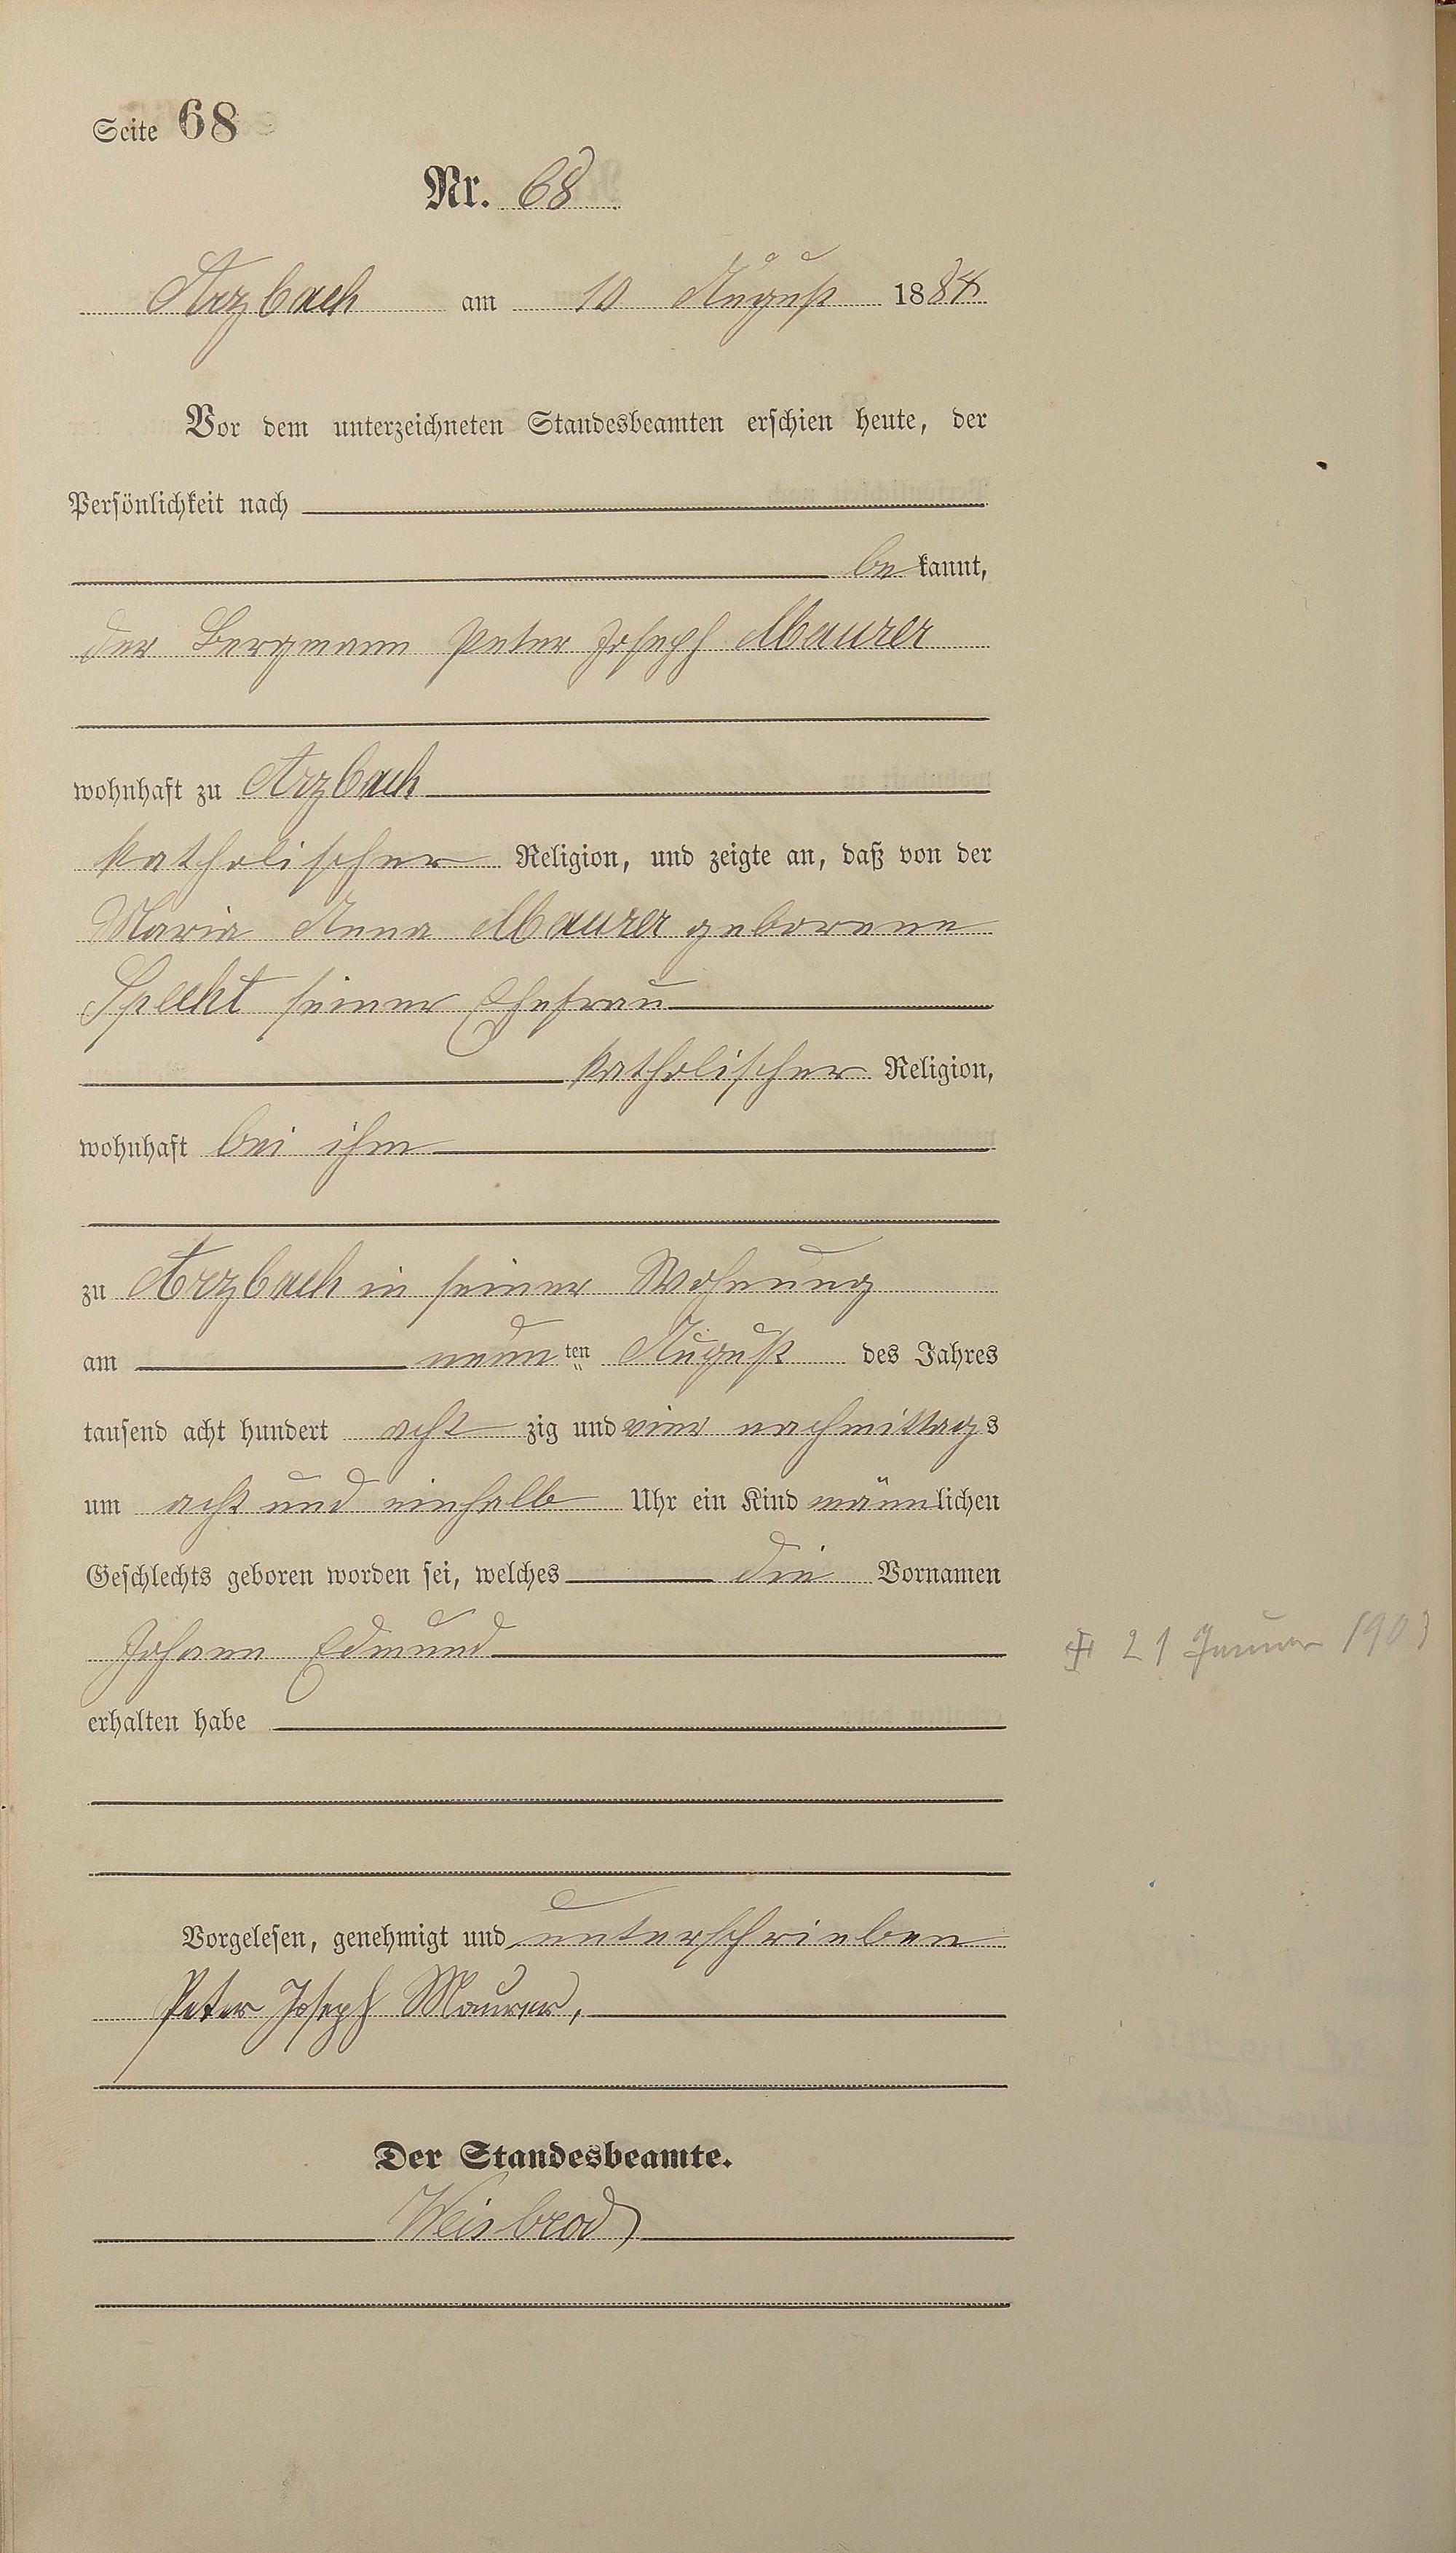 Seite 68
Nr. 68
Arzbach am 10 August 1884
Vor dem unterzeichneten Standesbeamten erschien heute, der
Persönlichkeit nach
be kannt,
der Bergmann Peter Joseph Maurer
wohnhaft zu Arzbach
katholischer Religion, und zeigte an, daß von der
Maria Anna Maurer geborene
Specht seiner Ehefrau
katholischer Religion,
wohnhaft bei ihm
zu Arzbach in seiner Wohnung
am neun ten August des Jahres
tausend acht hundert acht zig und vier nachmittags
um acht und einhalb Uhr ein Kind männlichen
Geschlechts geboren worden sei, welches die Vornamen
Johann Edmund
╬ 21 Januar 1903
erhalten habe
Vorgelesen, genehmigt und unterschrieben
Peter Joseph Maurer,
Der Standesbeamte.
Weisbrod